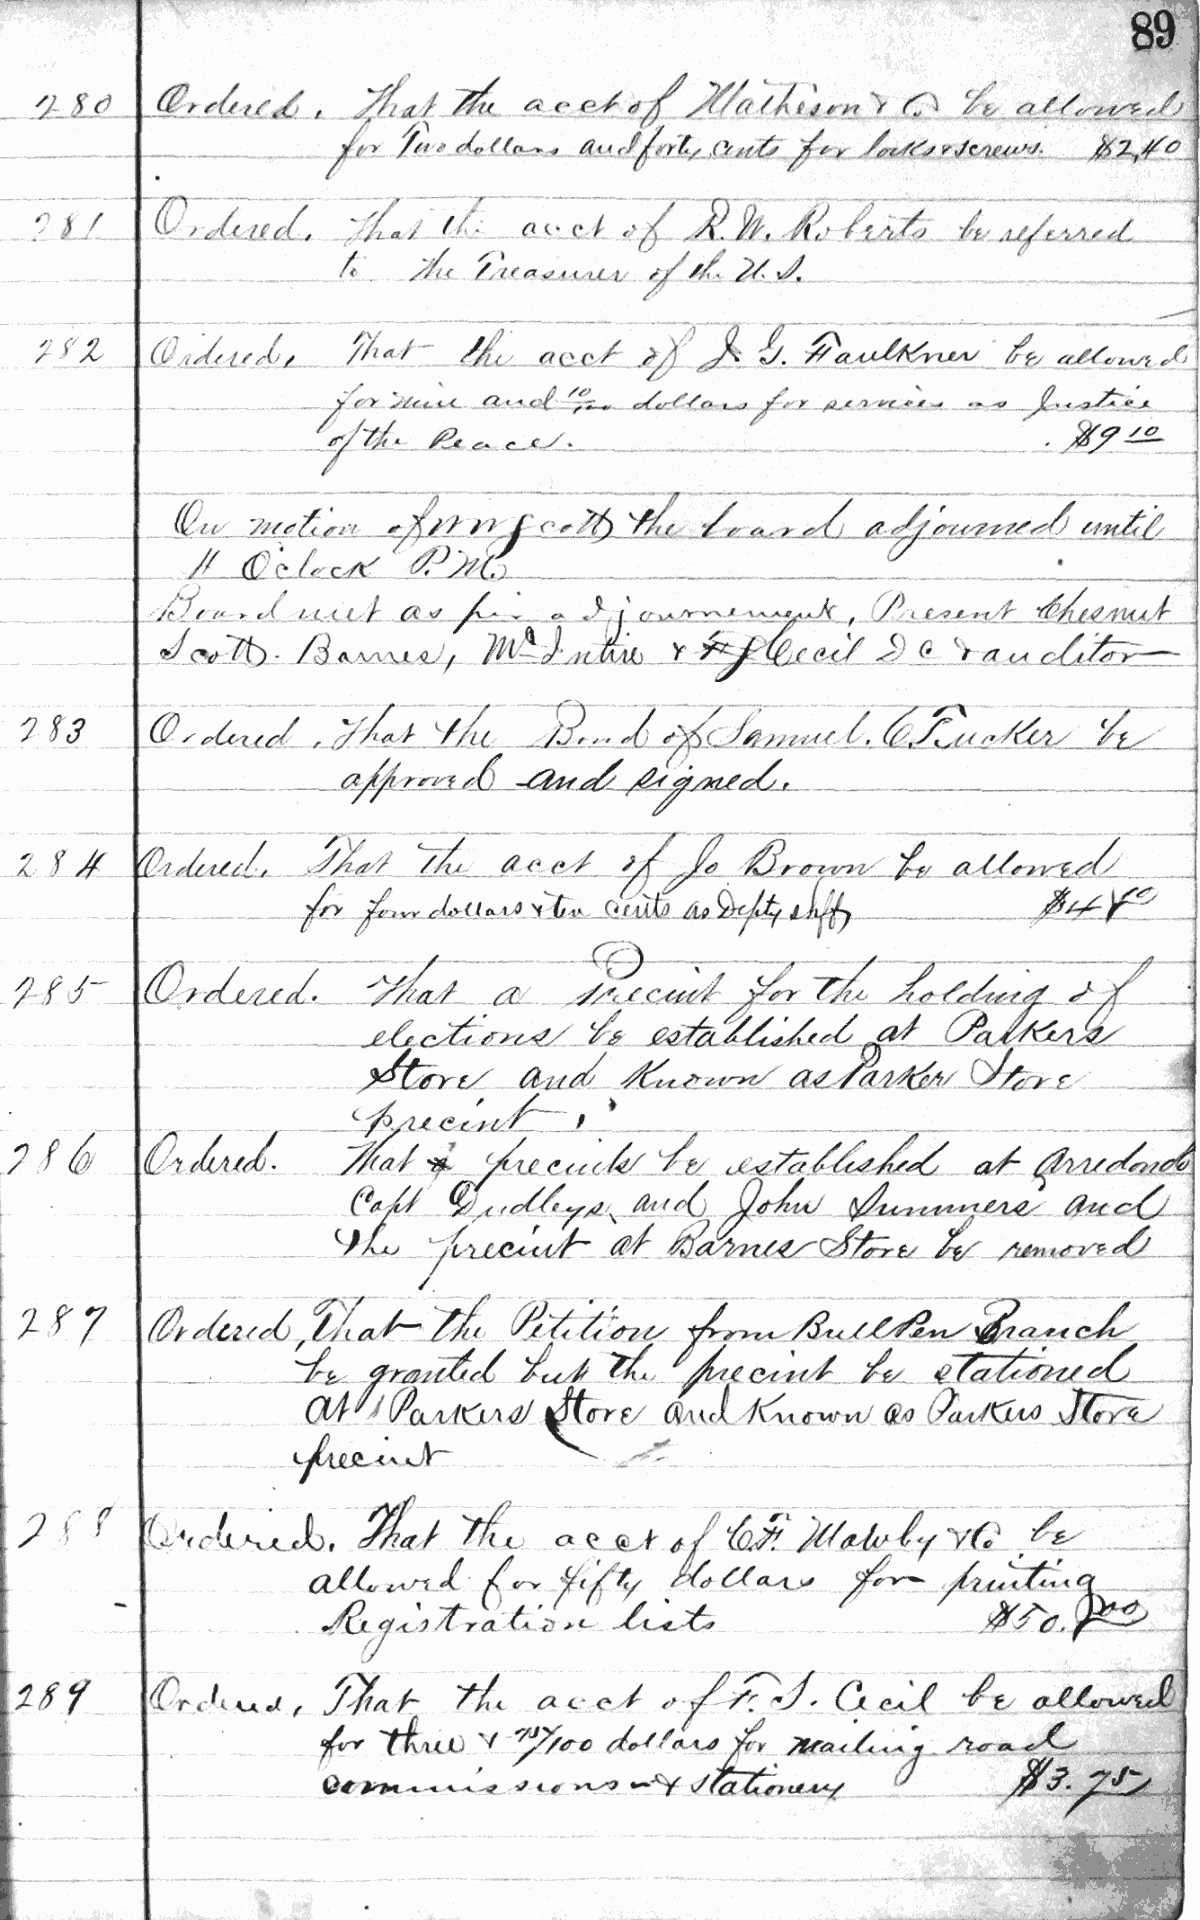 89
280 Ordered. That the acct of Matheson & Co be allowed
for Two dollars and forty cents for locks & screws. $2,40
281 Ordered. That the acct of R. W. Roberts be referred
to the Treasurer of the U. S.
282 Ordered, That the acct of J. G. Faulkner be allowed
for nine and 10/100 dollars for services as Justice
of the Peace. $9 10
On motion of Scott the board adjourned until
O'clock P. M.
Board met as per adjournement, Present Chesnut
Scott. Barnes, McIntire & Cecil D C & auditor
283 Ordered. That the Bond of Samuel. C Tucker be
approved and signed.
284 Ordered. That the acct of Jo Brown be allowed
for four dollars & ten cents as Depty shff
285 Ordered. That a Precint for the holding of
elections be established at Parkers
Store and Known as Parker Store
precint.
286 Ordered. That precincts be established at Arredondo
Capt Dudleys, and John Summers and
the precint at Barnes Store be removed
287 Ordered, That the Petition from Bull Pen Branch
be granted but the precint be stationed
at Parkers Store and Known as Parkers Store
precint
288 Ordered. That the acct of C. F. Mawby & Co be
allowed for fifty dollars for printing
Registration lists $50.00
289 Ordered, That the acct of F. S. Cecil be allowed
for three & 75/100 dollars for mailing road
commissions & stationery $3.75